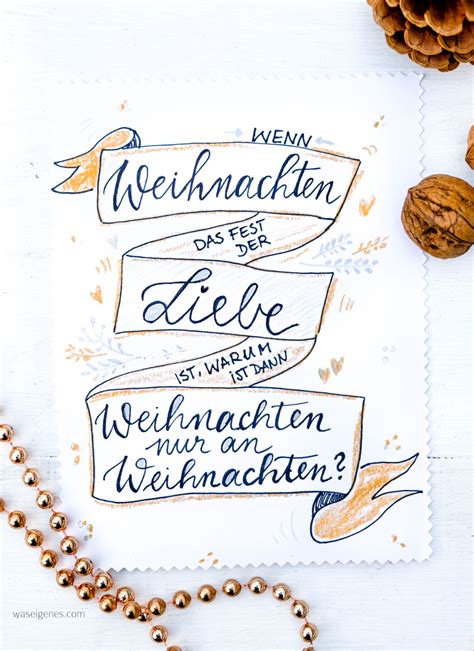 WENN
Weihnachten
DAS FEST
DER
Liebe
IST, WARUM
IST DANN
Weihnachten
nur an
Weihnachten?
waseigenes.com